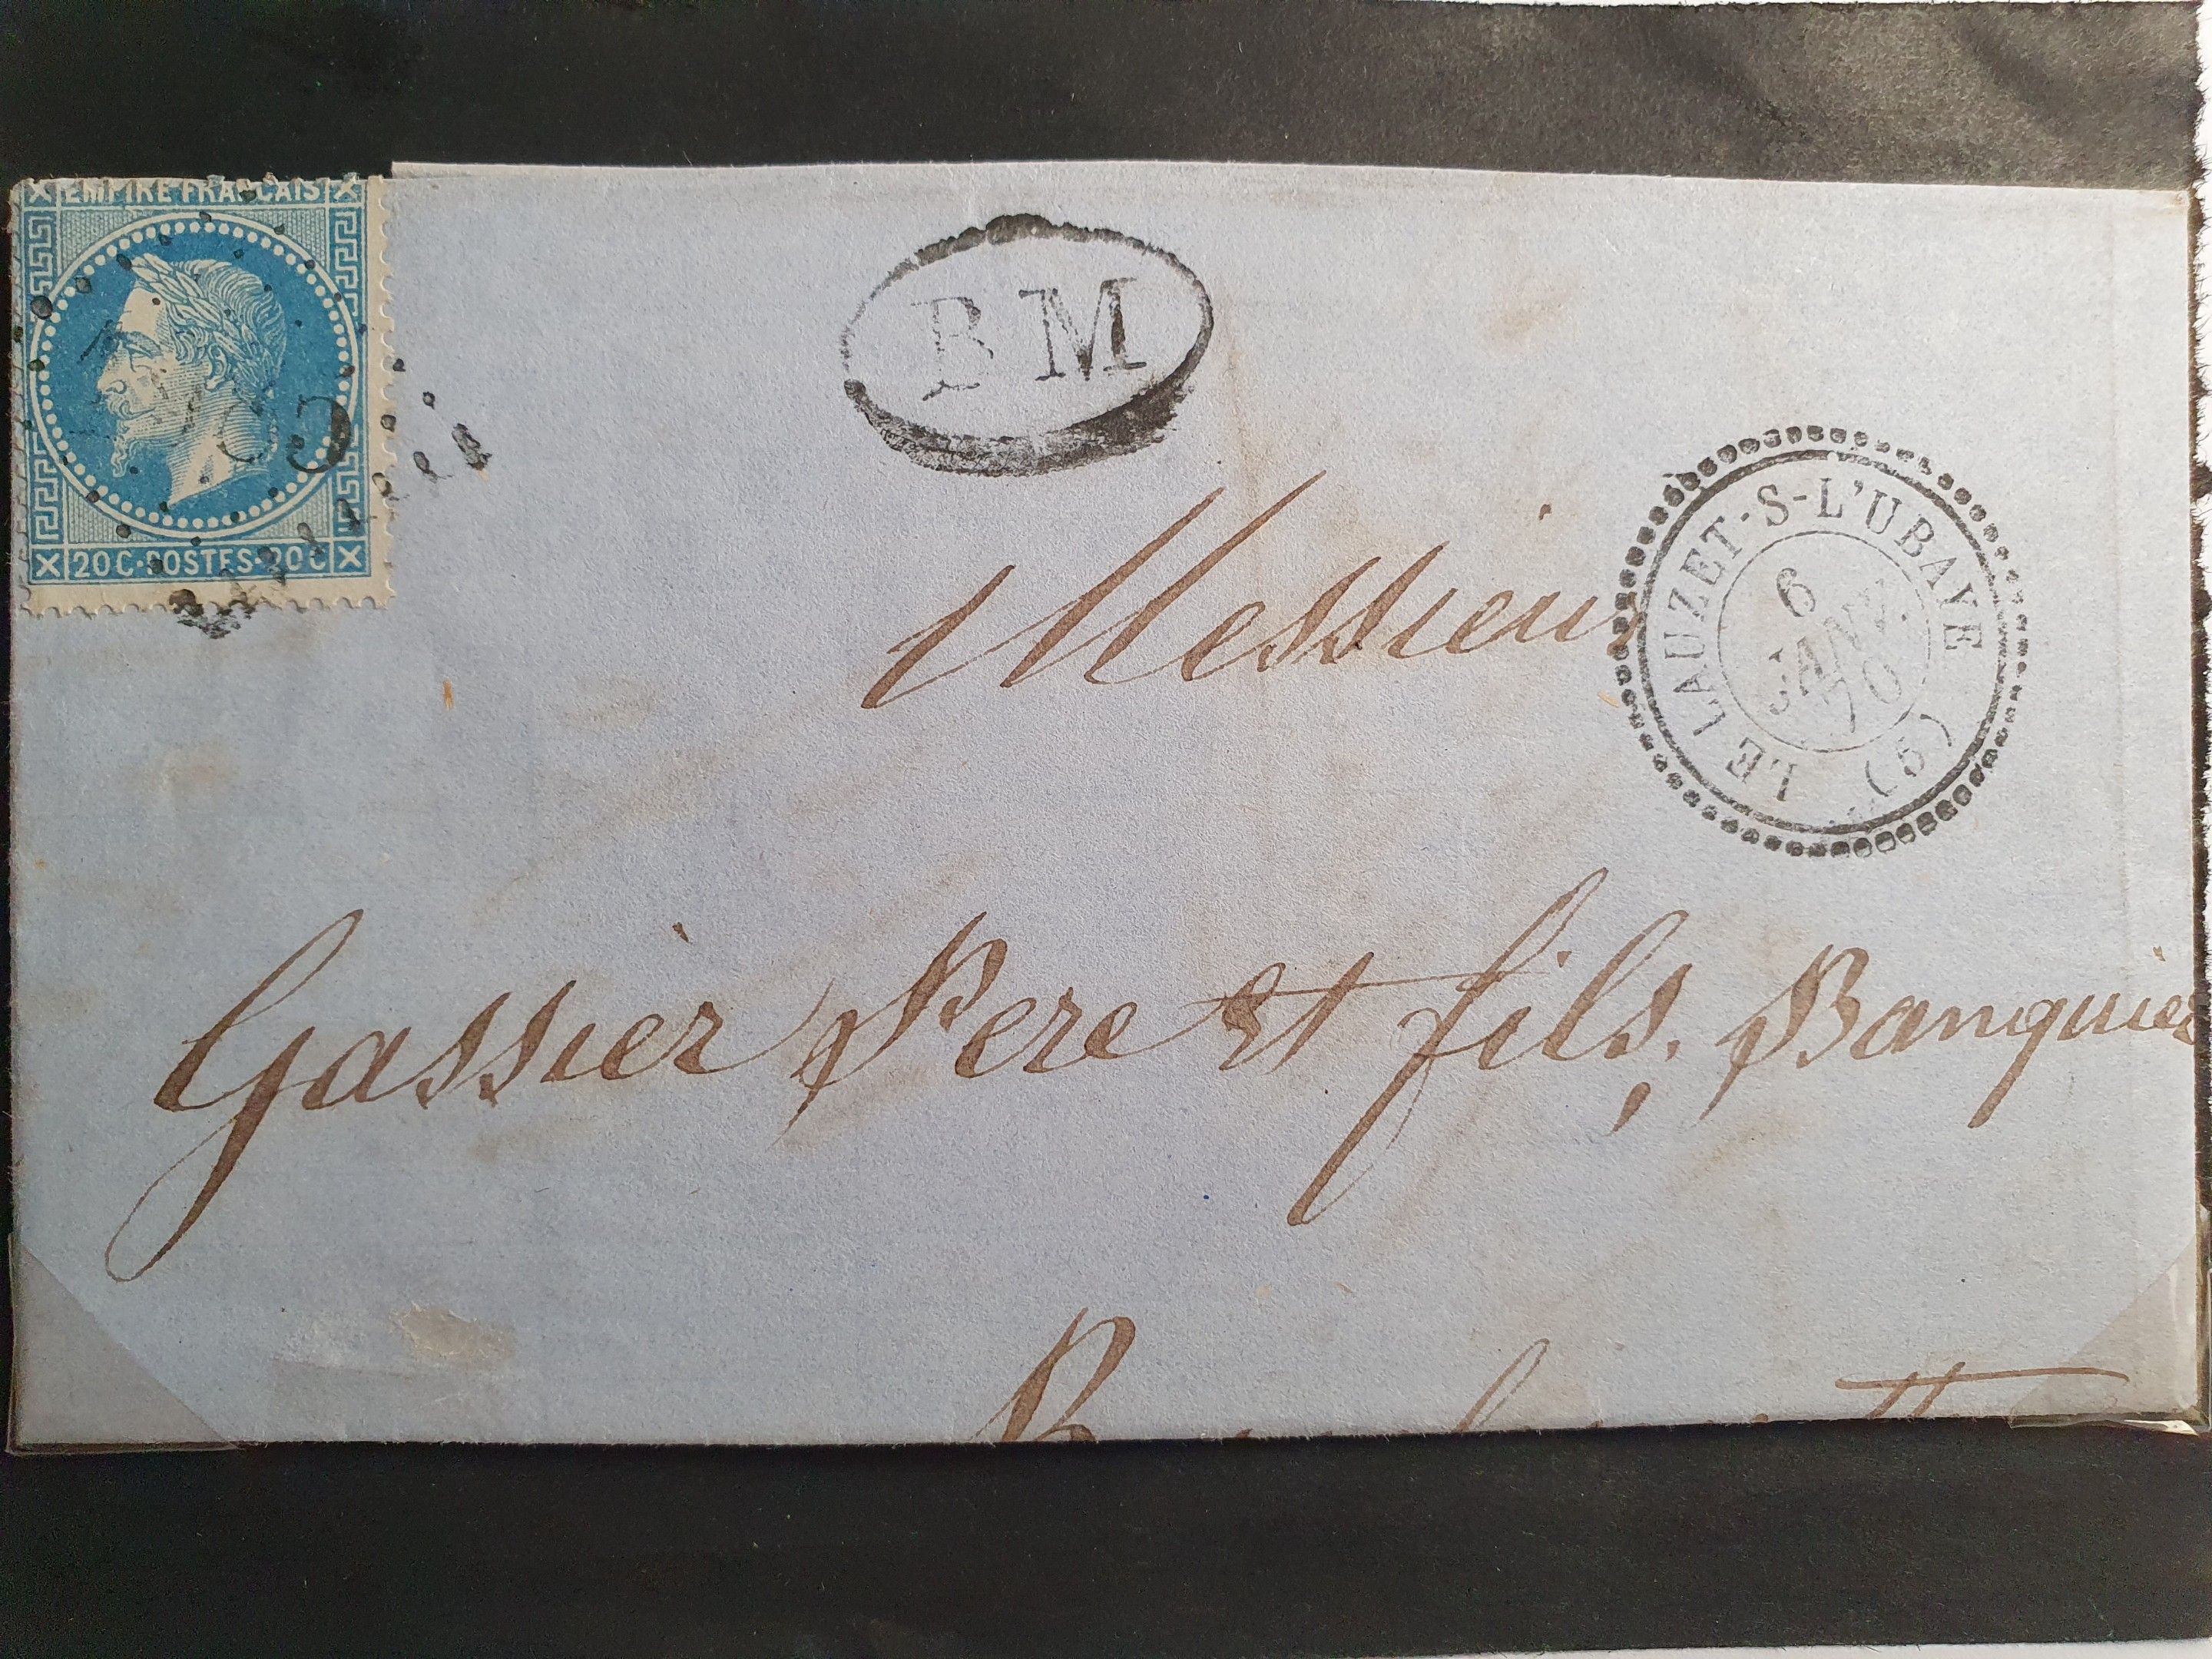 EMPIRE FRANÇAIS
20 C · POSTES · 20 C
BM
LE LAUZET-S-L'UBAYE
6
JANV.
70
(5)
Messieurs
Gassier Père et fils, Banquiers